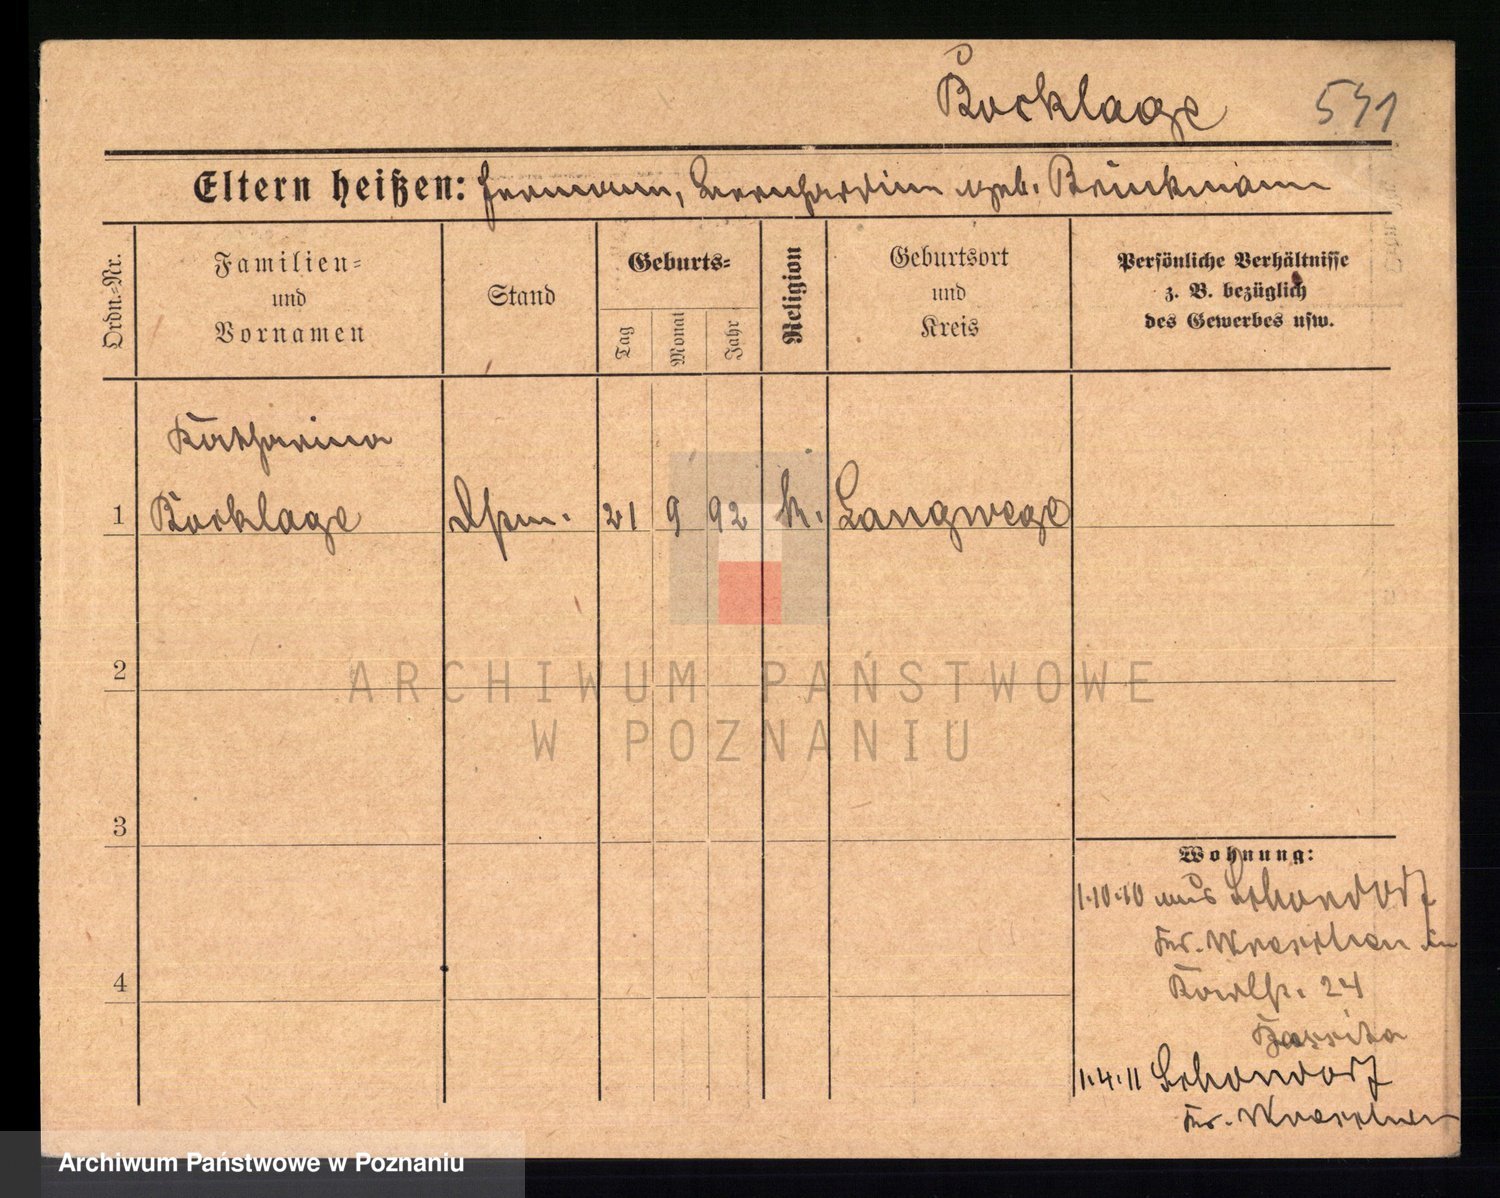 Bocklage 541
Eltern heißen: Hermann, Bernhardine geb. Brinkmann
Ordn.-Nr.
Familien-
und
Vornamen
Stand
Geburts-
Tag
Monat
Jahr
Religion
Geburtsort
und
Kreis
Persönliche Verhältnisse
z. B. bezüglich
des Gewerbes usw.
Katharina
1 Bocklage 21 9 92 k. Langwege
2
ARCHIWUM PAŃSTWOWE
W POZNANIU
3
Wohnung:
1.10.10 aus
Kr. Wreschen in
24
4
1.4.11
Kr. Wreschen
Archiwum Państwowe w Poznaniu